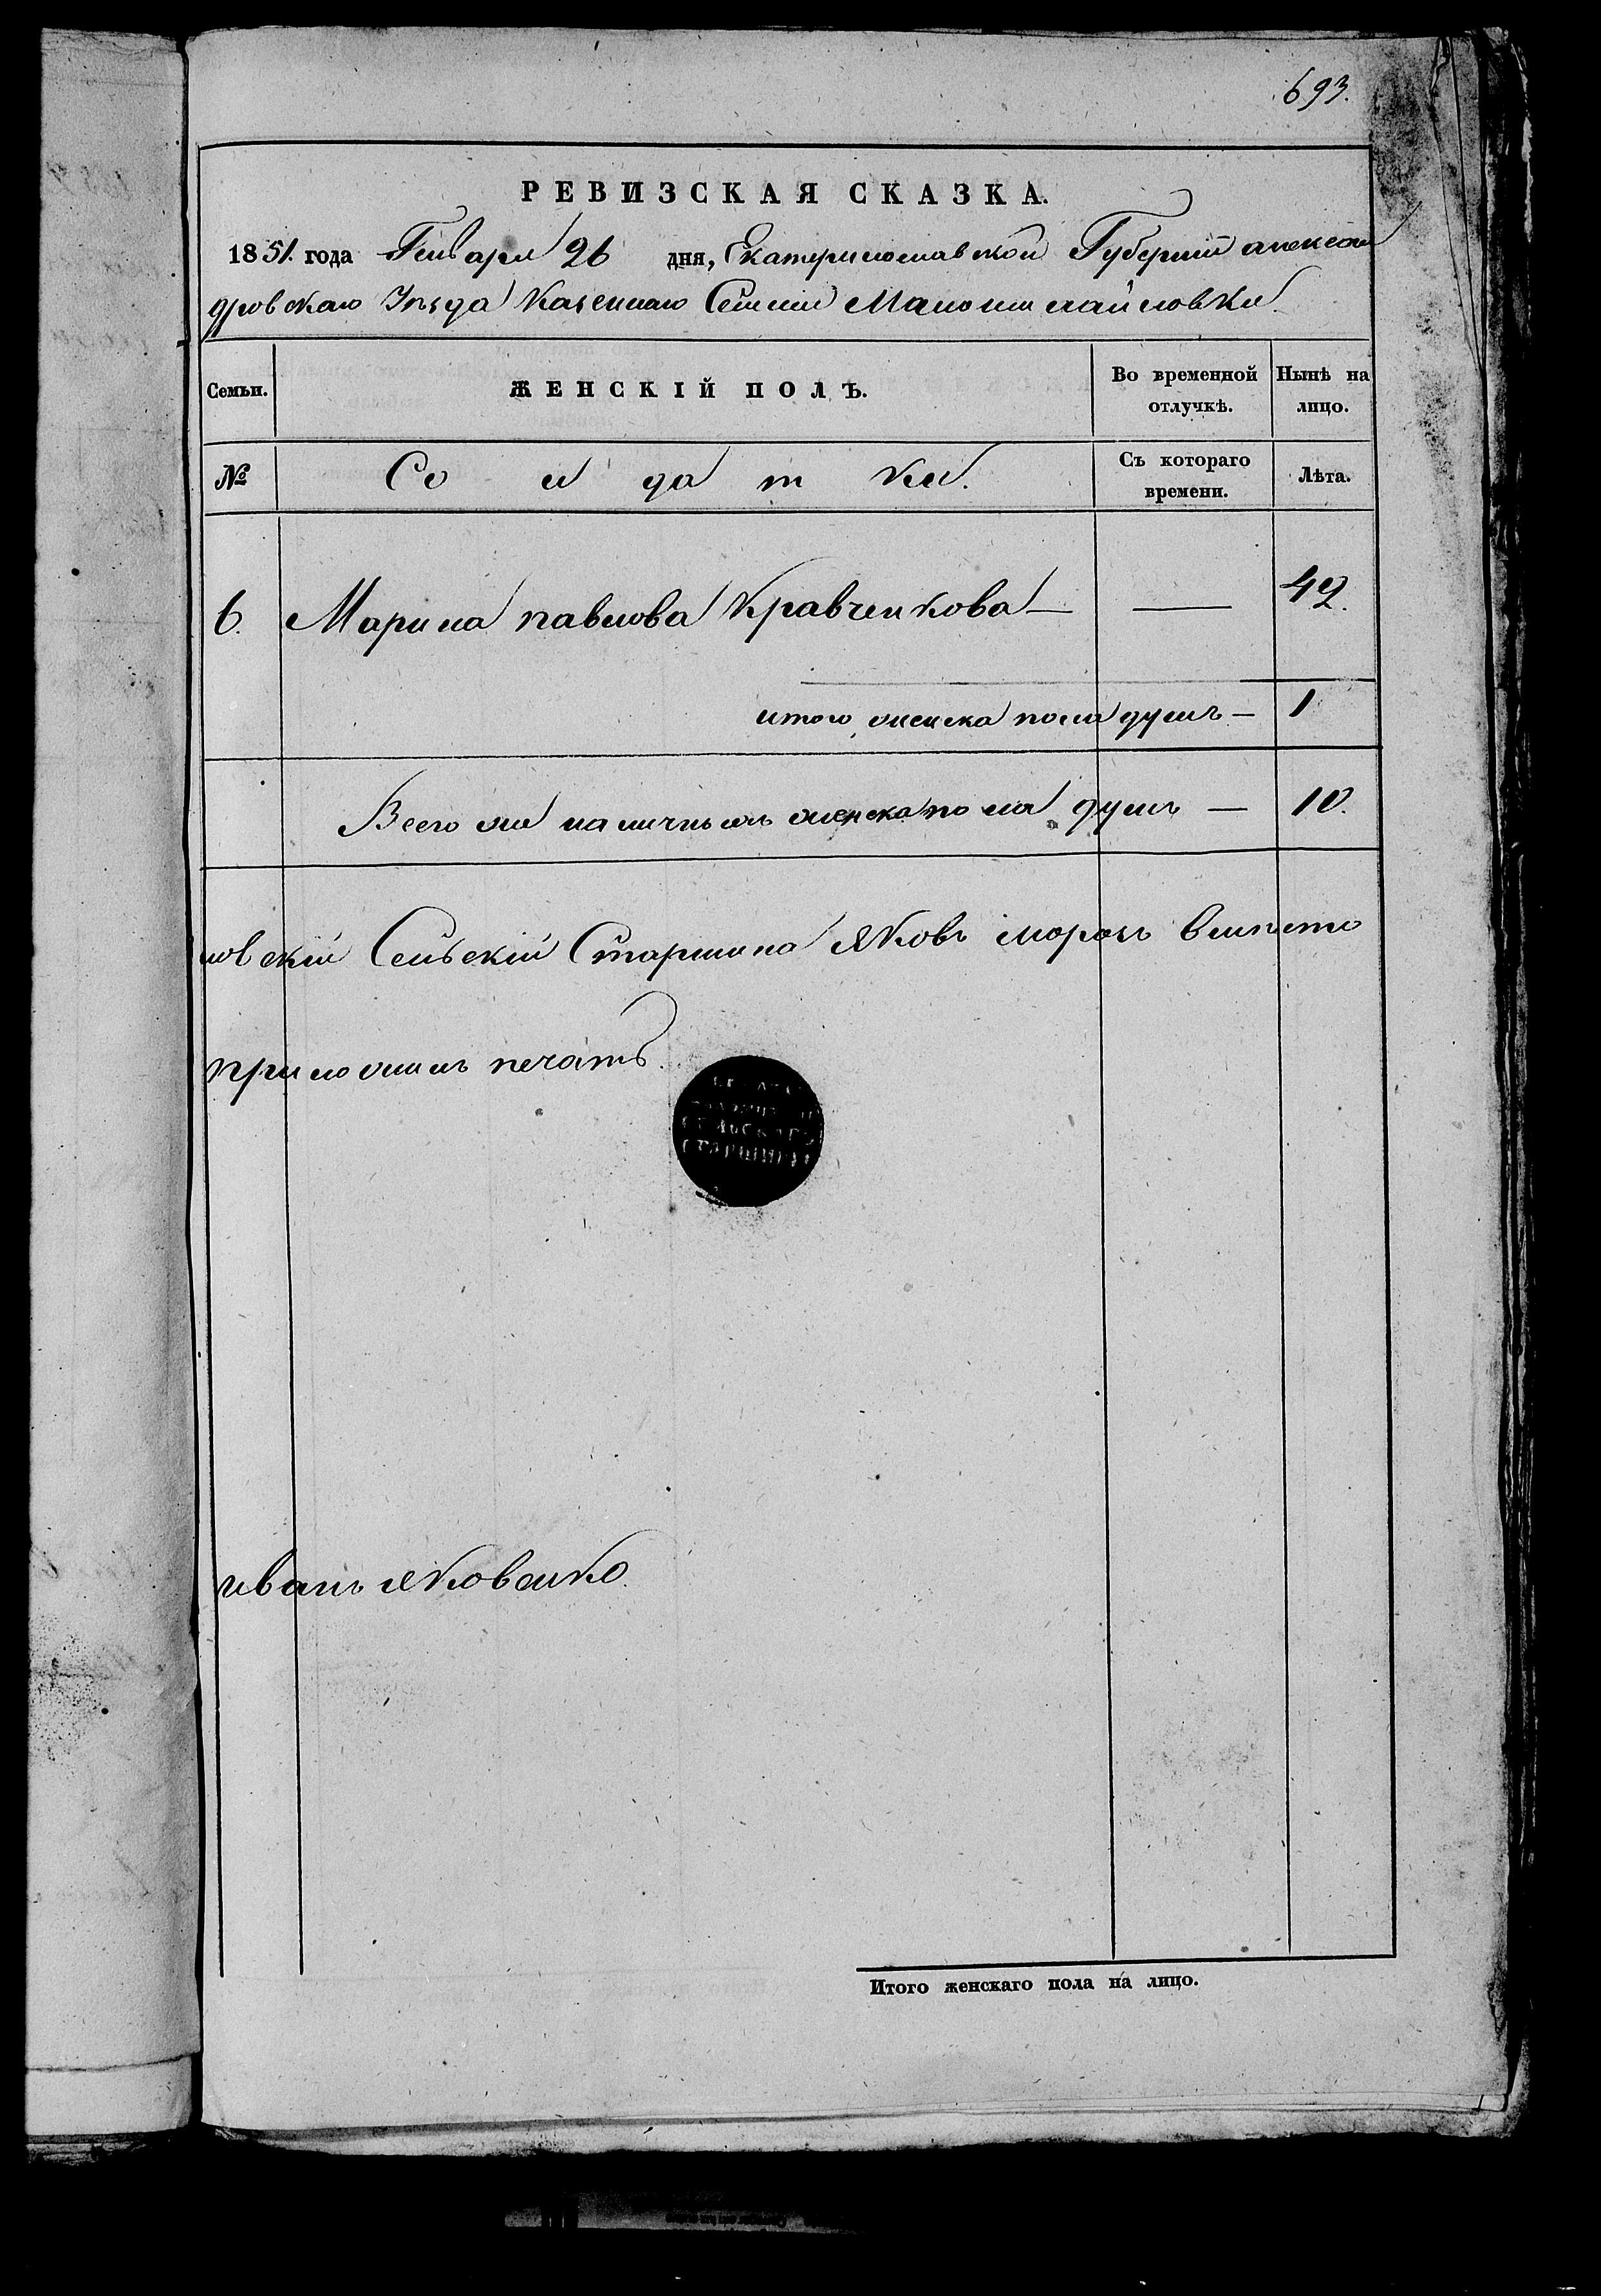 693.
РЕВИЗСКАЯ СКАЗКА.
1851. года Генваря 26 дня, Екатеринославской Губерніи алексан
дровскаго Уѣзда Казеннаго Селенія Маломихайловки.
Семьи. ЖЕНСКІЙ ПОЛЪ. Во временной отлучкѣ. Нынѣ на лицо.
№ Солдатки. Съ котораго времени. Лѣта.
6. Марина павлова Кравченкова — — 42.
итого женска пола душъ — 1
Всего же наличныхъ женска пола душъ — 10.
новскій Сельскій Старшина Яковъ морозъ вмѣсто
приложилъ печать.
СЕЛЬСКАГО
СТАРШИНЫ
иванъ Яковенко.
Итого женскаго пола на лицо.